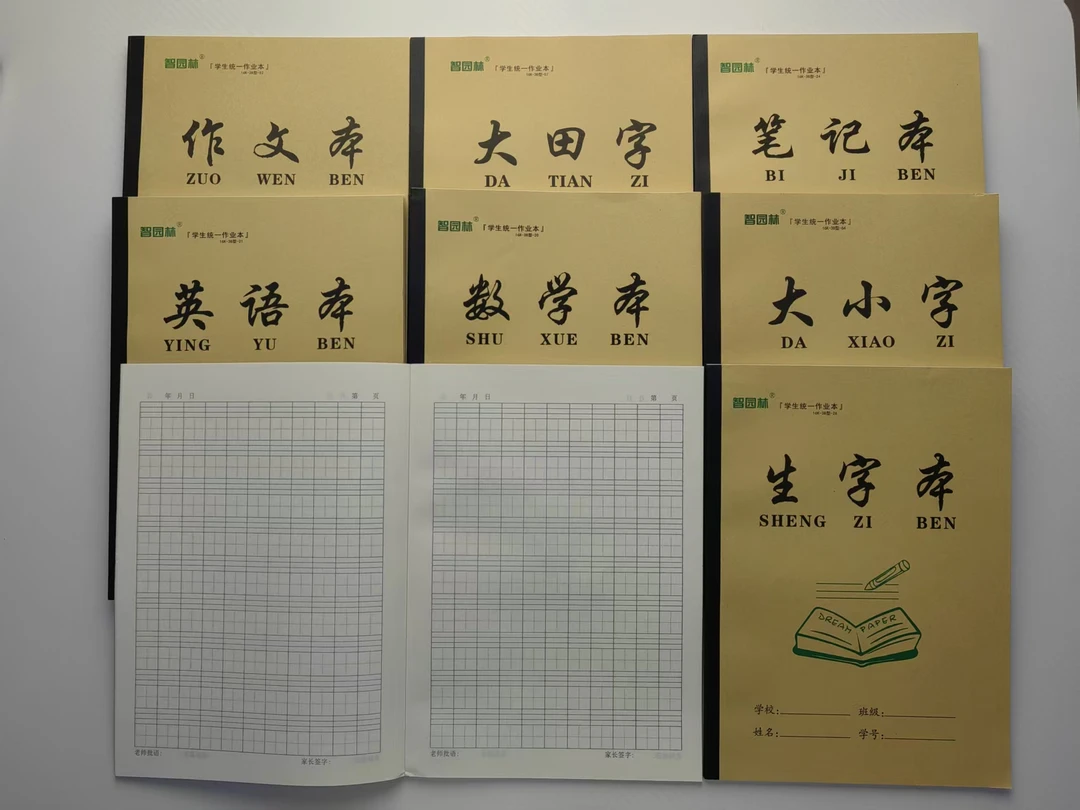 智园林®
「学生统一作业本」
作文本
ZUO WEN BEN
智园林®
「学生统一作业本」
大田字
DA TIAN ZI
智园林®
「学生统一作业本」
笔记本
BI JI BEN
智园林®
「学生统一作业本」
英语本
YING YU BEN
智园林®
「学生统一作业本」
数学本
SHU XUE BEN
智园林®
「学生统一作业本」
大小字
DA XIAO ZI
年 月 日 第 页
老师批语:
家长签字:
年 月 日 第 页
老师批语:
家长签字:
智园林®
「学生统一作业本」
生字本
SHENG ZI BEN
DREAM PAPER
学校: 班级:
姓名: 学号: